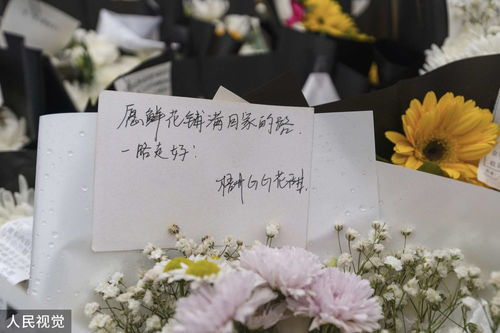 愿鲜花铺满回家的路.
一路走好!
梧州GG花甜.
人民视觉